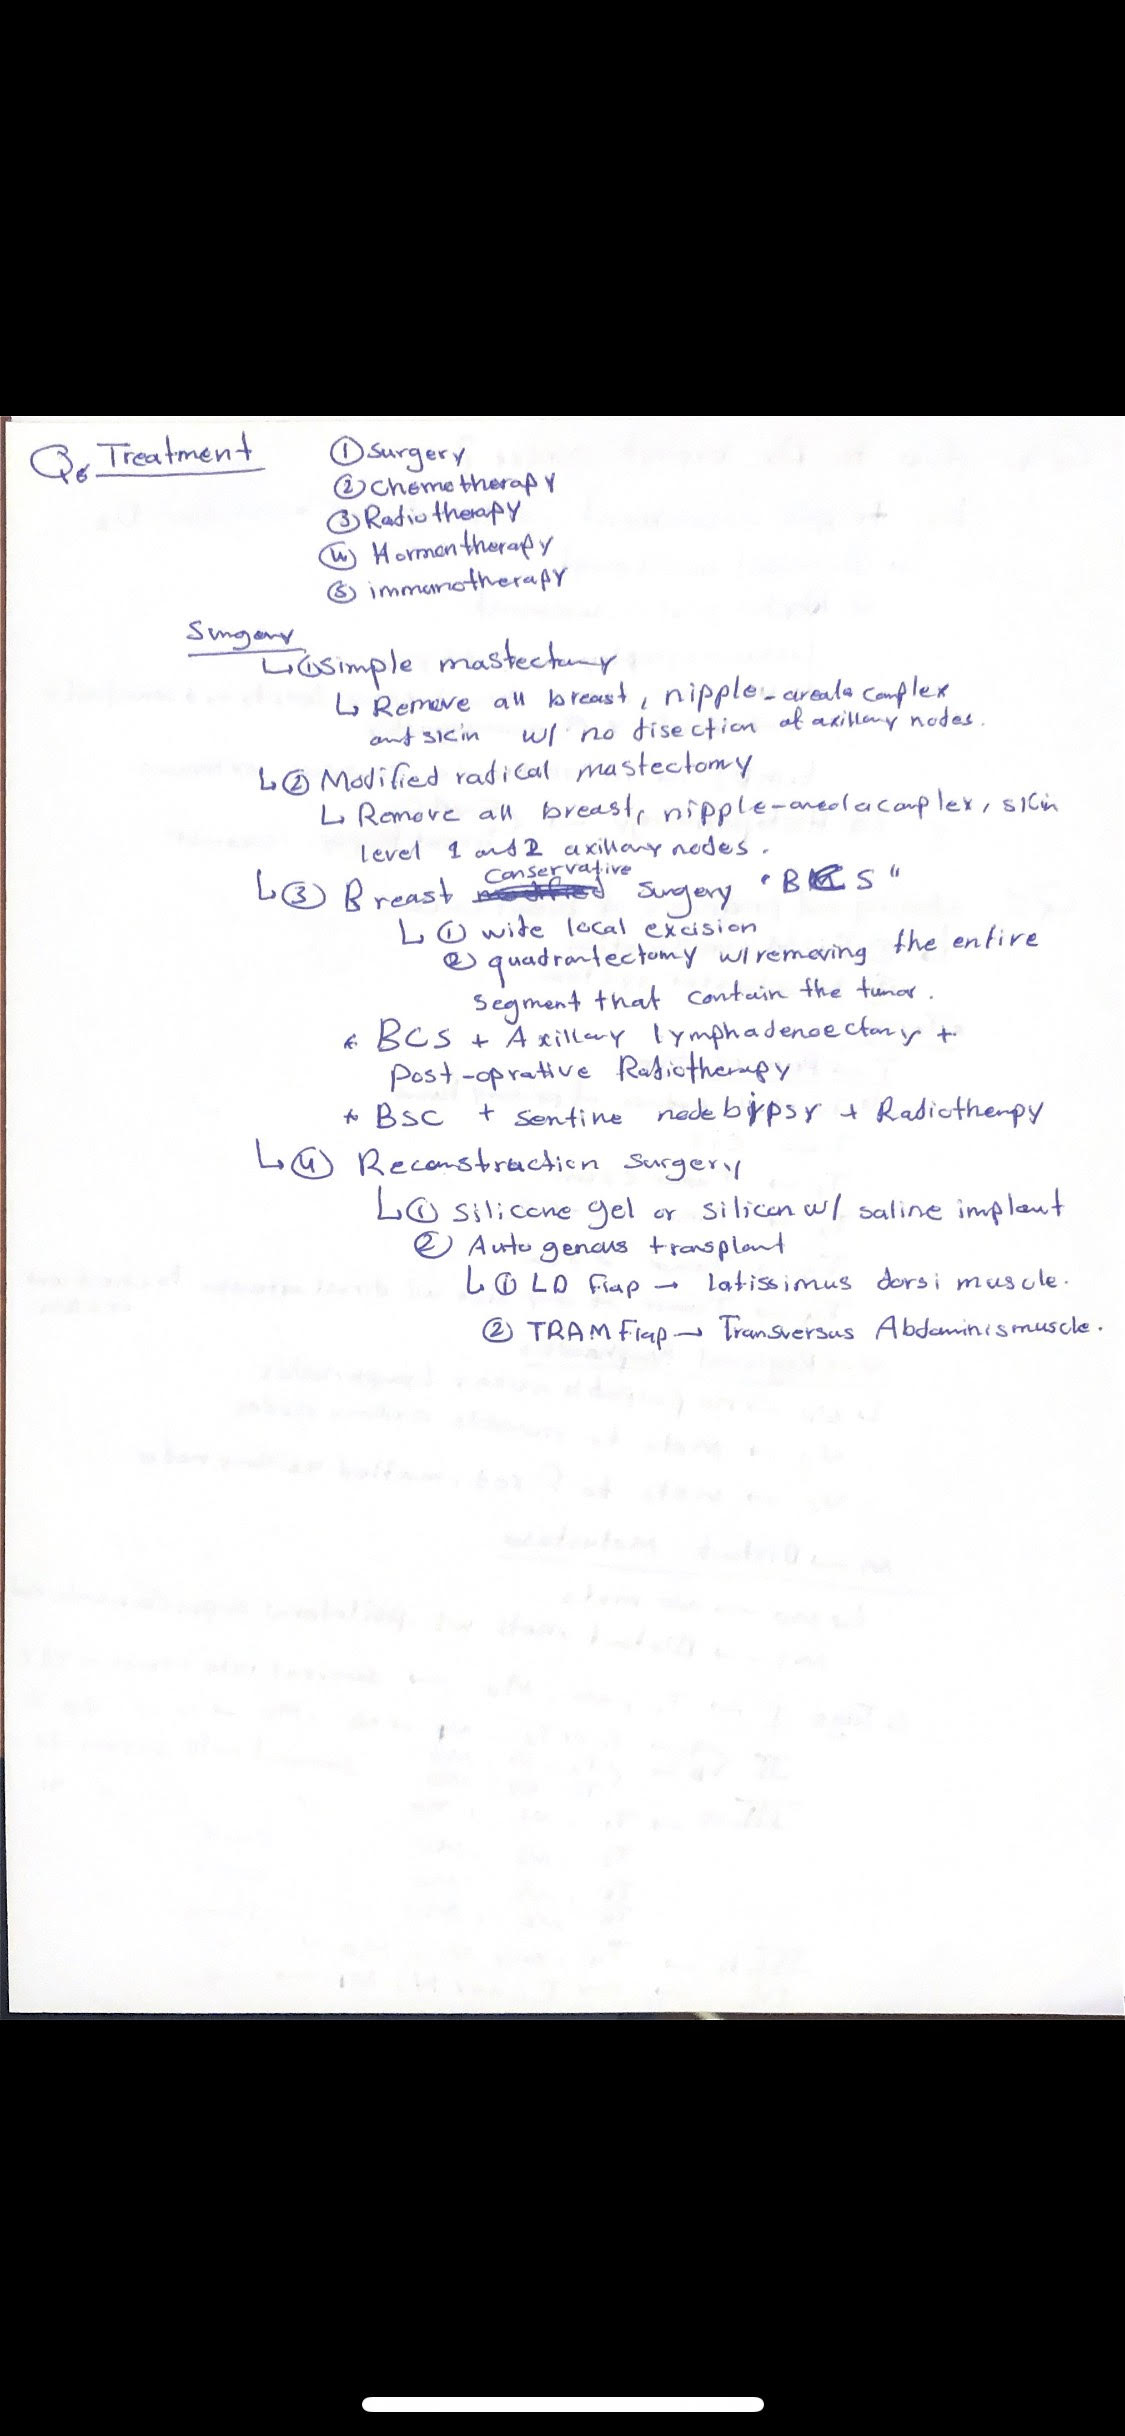 Q6 Treatment
① surgery
② chemotherapy
③ Radiotherapy
④ Hormontherapy
⑤ immunotherapy
Surgery
↳ ① simple mastectomy
↳ Remove all breast, nipple-areala complex
and skin w/ no disection of axillary nodes.
↳ ② Modified radical mastectomy
↳ Remove all breast, nipple-areola complex, skin
level 1 and 2 axillary nodes.
↳ ③ Breast Conservative surgery "BCS"
↳ ① wide local excision
② quadrantectomy w/ removing the entire
segment that contain the tumor.
* BCS + Axillary lymphadenoectomy +
Post-oprative Radiotherapy
* BSC + sentine node biopsy + Radiotherapy
↳ ④ Reconstruction surgery
↳ ① silicone gel or silicon w/ saline implant
② Autogenous transplant
↳ ① LD Flap → latissimus dorsi muscle.
② TRAM Flap → Transversus Abdominis muscle.